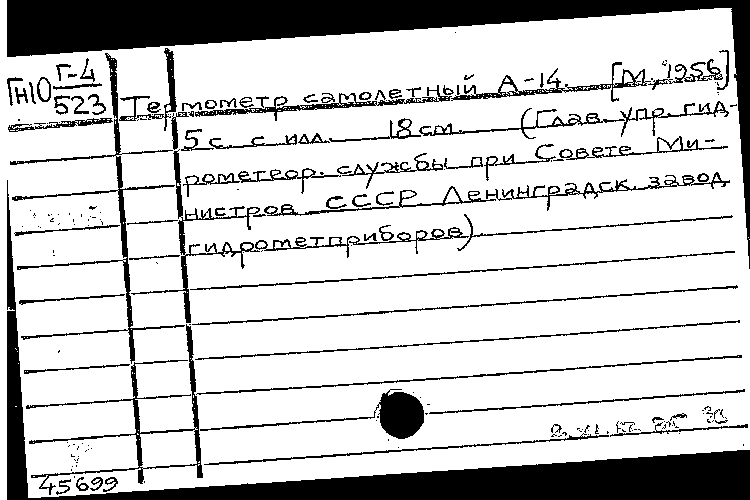 ГН10 Г-4
523
Термометр самолетный А-14. [М., 1956].
5 с. с илл. 18 см. (Глав. упр. гид-
рометеор. службы при Совете Ми-
нистров СССР. Ленинградск. завод
гидрометприборов).
45699